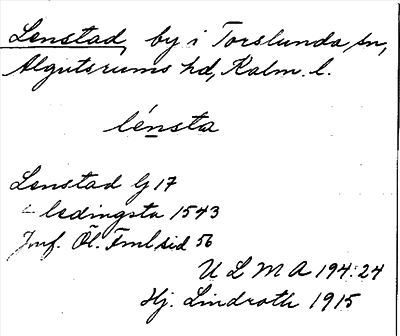 Lenstad, by i Torslunda sn,
Algutsrums hd, Kalm. l.
lénsta
Lenstad Gj 17
ledingsta 1543
Jmf. Öl. Fml sid 56
U L M A 194:24
Hj. Lindroth 1915